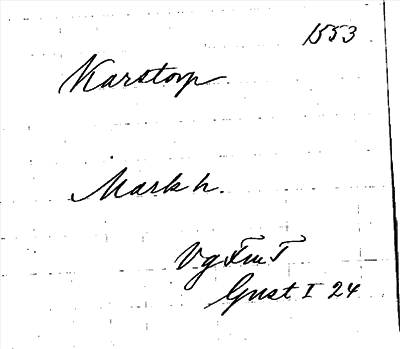 1553
Karstorp
Mark h.
Vg Fm T
Gust I 24